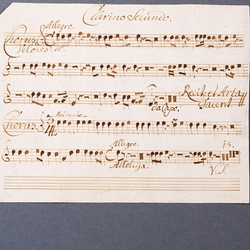 Clarino Secundo.
Allegro.
Chorus
Recit et Aria
tacent
Da Capo.
Chorus.
Andante.
Allegro.
Alleluja
V. S.